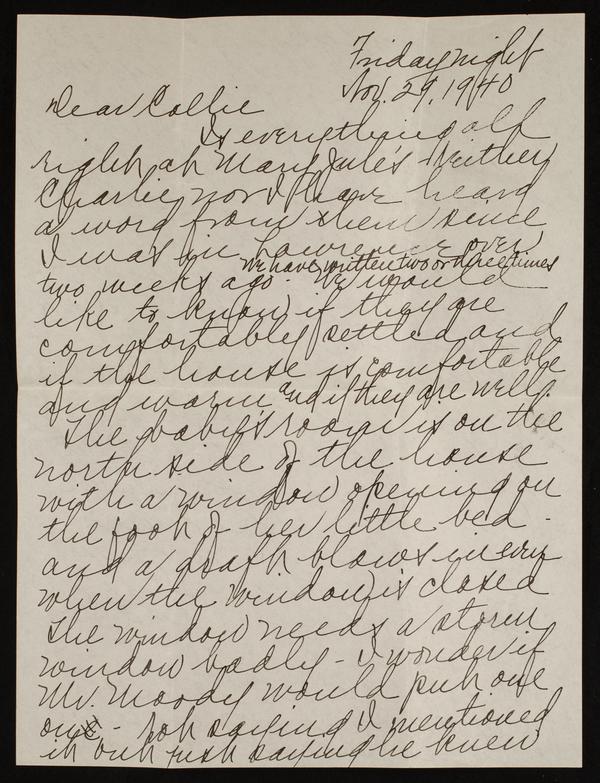 Friday night
Nov. 29, 1940
Dear Callie
Is everything all
right at Mary Jule's Neither
Charlie nor I have heard
a word from them since
I was in Lawrence over
two weeks ago. We have written two or three times We would
like to know if they are
comfortably settled and
if the house is comfortable
and warm and if they are well.
The baby's room is on the
north side of the house
with a window opening on
the foot of her little bed -
and a draft blows in even
when the window is closed
The window needs a storm
window badly - I wonder if
Mr. Moody would put one
on - saying I mentioned
it but just saying he knew